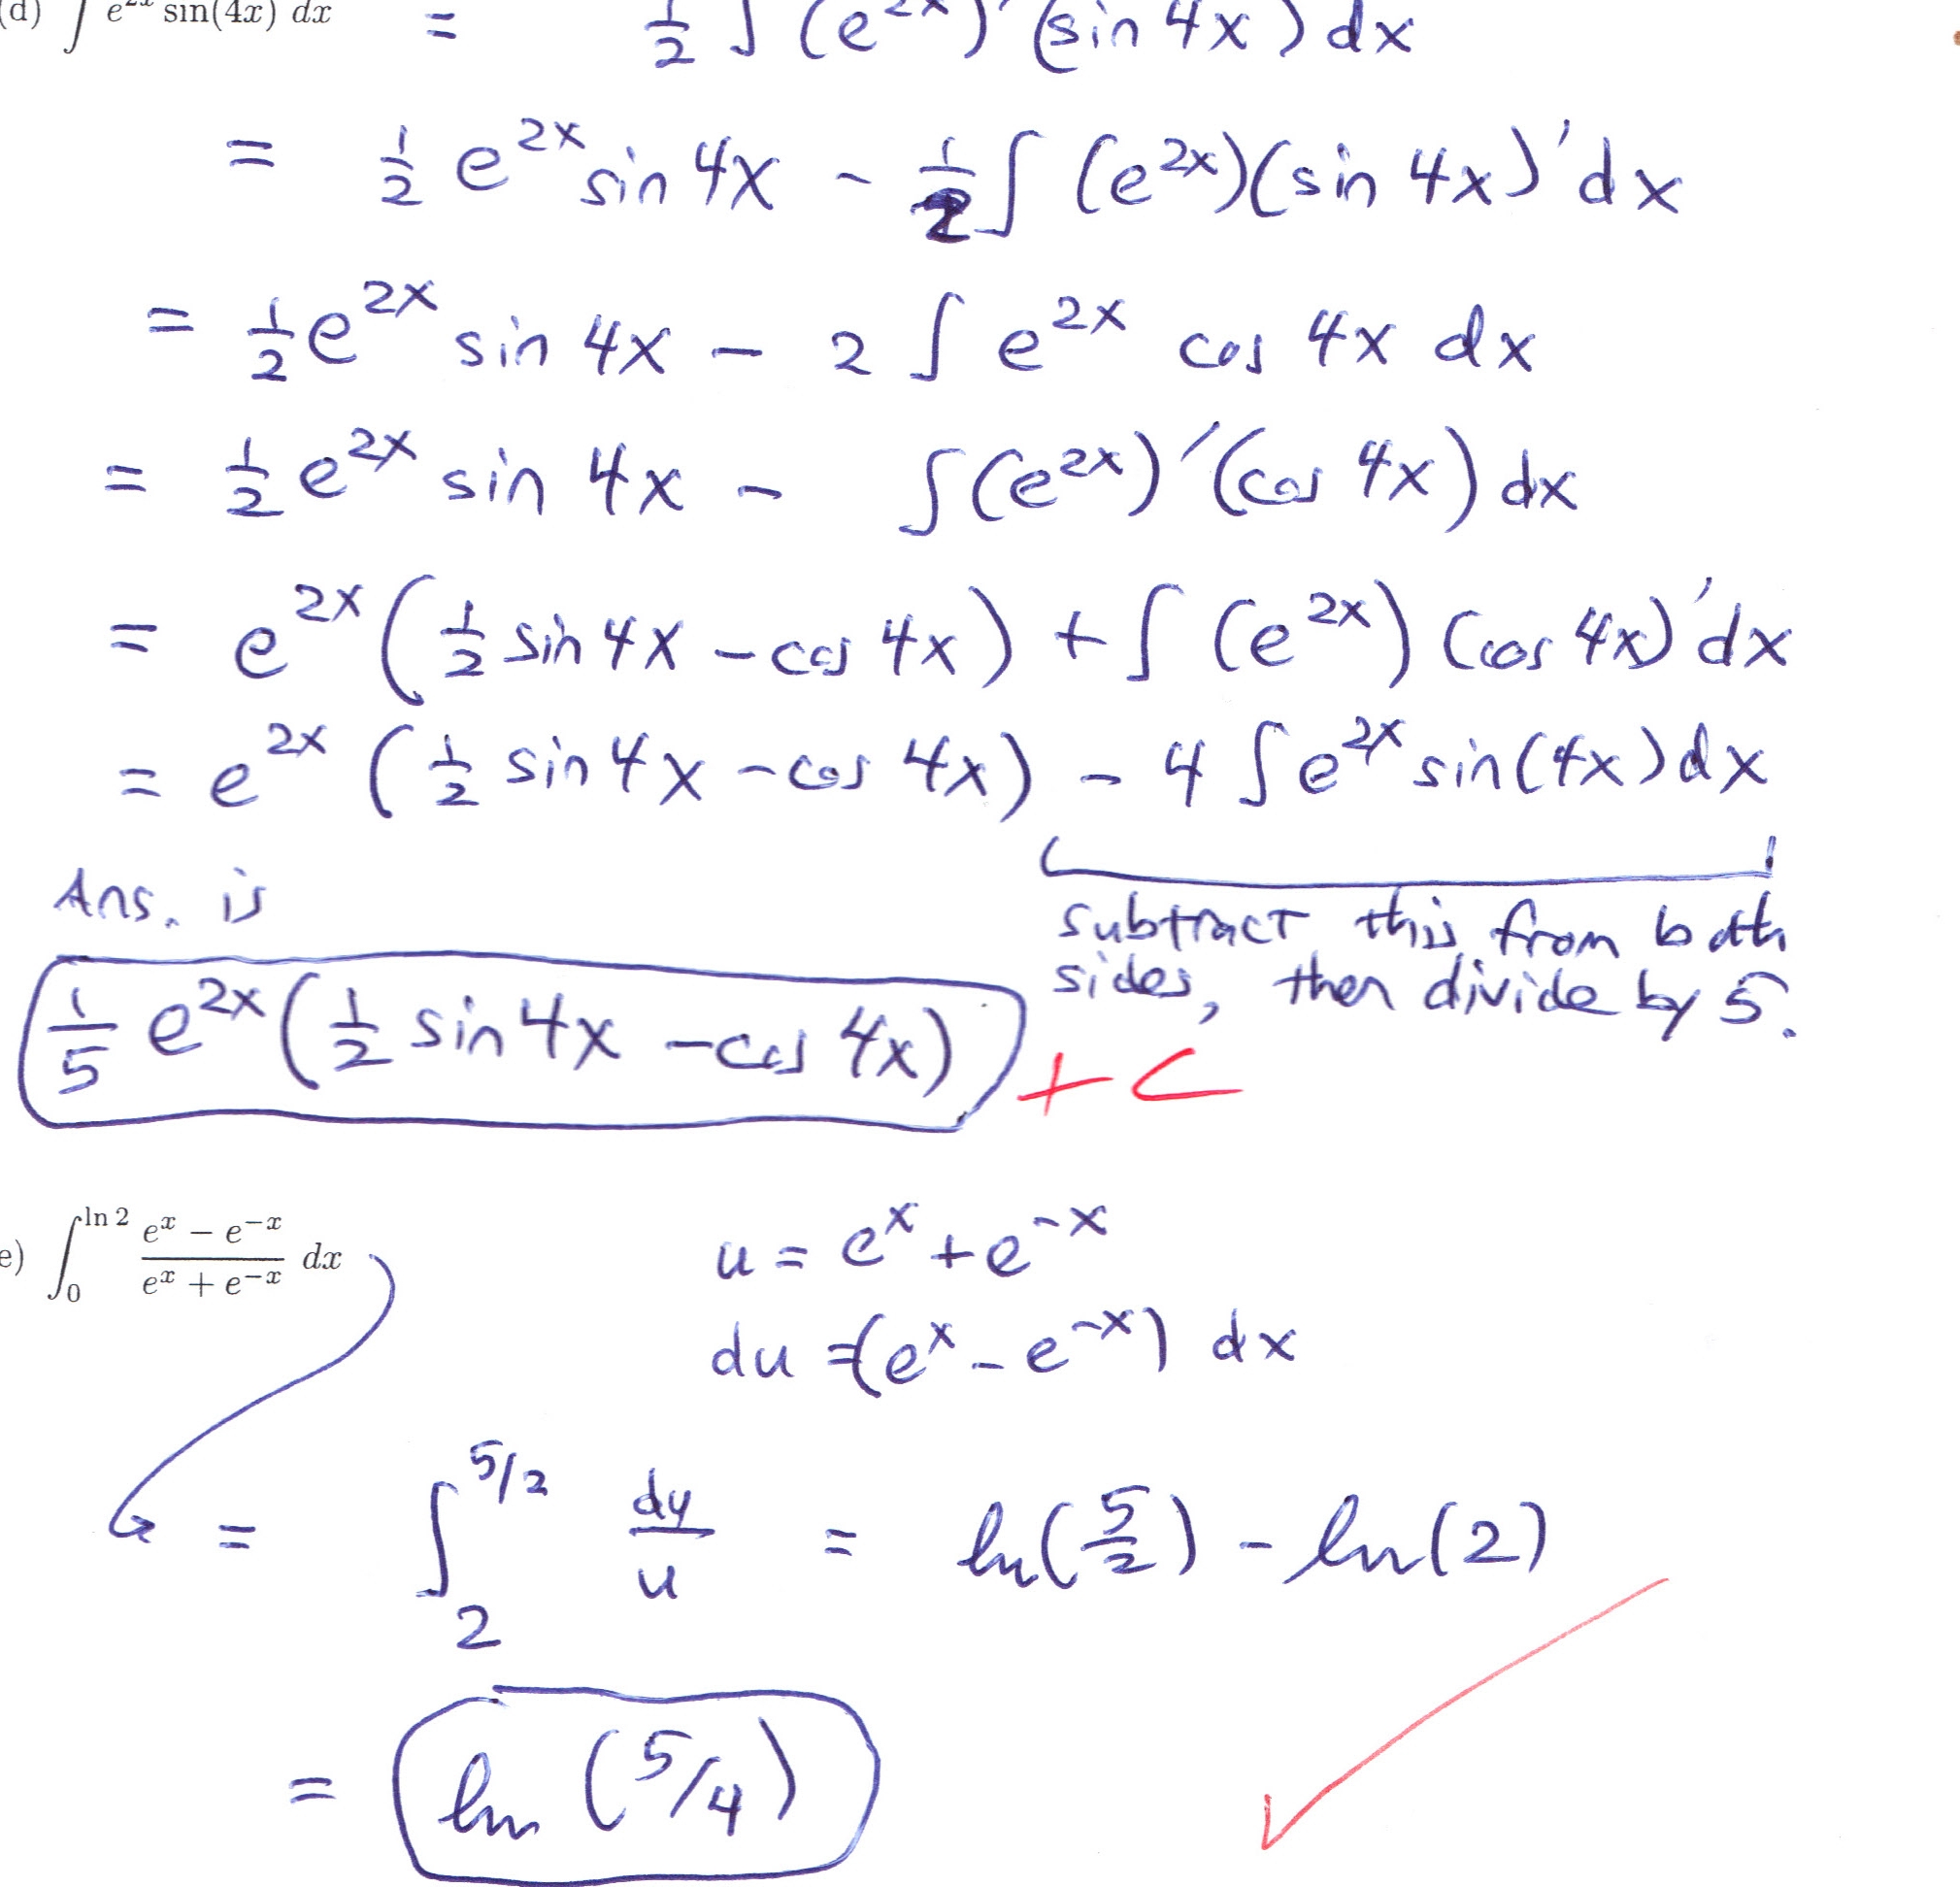 (d) ∫ e^{2x} sin(4x) dx = 1/2 ∫ (e^{2x})' (sin 4x) dx
= 1/2 e^{2x} sin 4x - 1/2 ∫ (e^{2x})(sin 4x)' dx
= 1/2 e^{2x} sin 4x - 2 ∫ e^{2x} cos 4x dx
= 1/2 e^{2x} sin 4x - ∫ (e^{2x})' (cos 4x) dx
= e^{2x} (1/2 sin 4x - cos 4x) + ∫ (e^{2x}) (cos 4x)' dx
= e^{2x} (1/2 sin 4x - cos 4x) - 4 ∫ e^{2x} sin(4x) dx
Ans. is
1/5 e^{2x} (1/2 sin 4x - cos 4x) + C
subtract this from both
sides, then divide by 5.
e) ∫_0^{ln 2} (e^x − e^{−x})/(e^x + e^{−x}) dx
u = e^x + e^{-x}
du = (e^x - e^{-x}) dx
= ∫_2^{5/2} du/u = ln(5/2) - ln(2)
= ln (5/4)